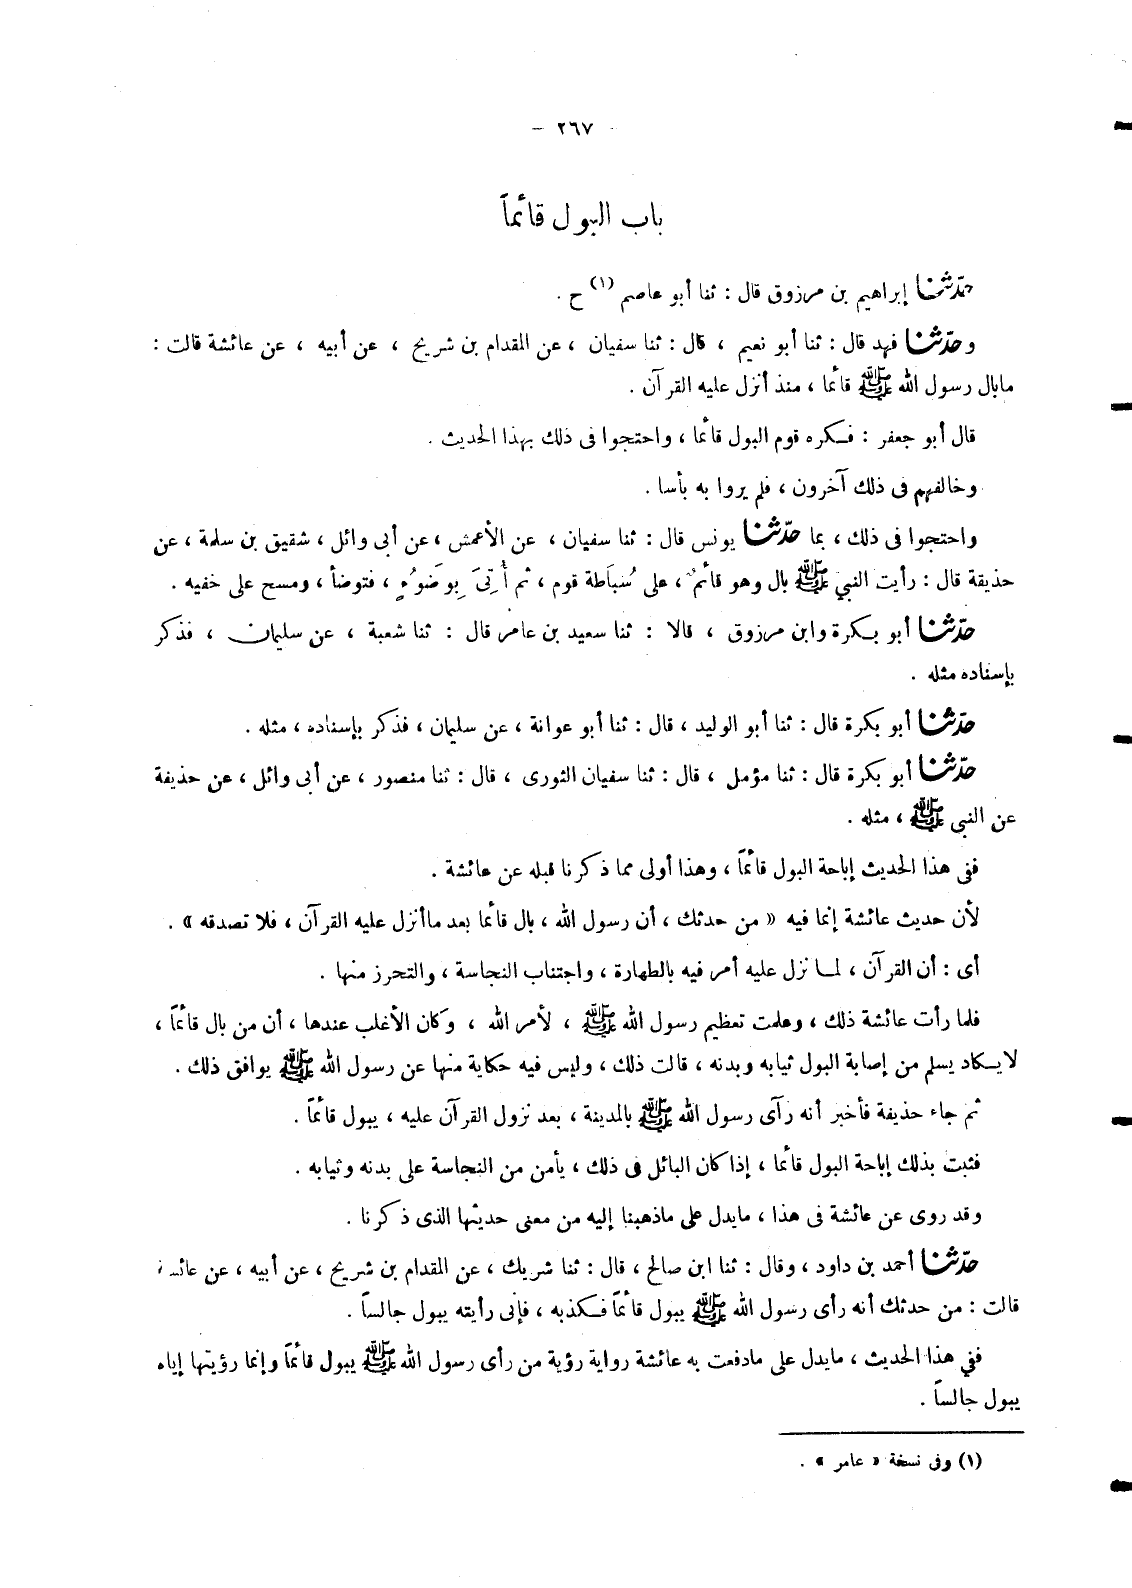 - ٢٦٧ -
باب البول قائماً
حدّثنا إبراهيم بن مرزوق قال : ثنا أبو عاصم (١) ح .
وحدّثنا فهد قال : ثنا أبو نعيم ، قال : ثنا سفيان ، عن المقدام بن شريح ، عن أبيه ، عن عائشة قالت :
مابال رسول الله ﷺ قائما ، منذ أنزل عليه القرآن .
قال أبو جعفر : فكره قوم البول قائما ، واحتجوا فى ذلك بهذا الحديث .
وخالفهم فى ذلك آخرون ، فلم يروا به بأسا .
واحتجوا فى ذلك ، بما حدّثنا يونس قال : ثنا سفيان ، عن الأعمش ، عن أبى وائل ، شقيق بن سلمة ، عن
حذيفة قال : رأيت النبي ﷺ بال وهو قائمٌ ، على سُبَاطة قوم ، ثم أُتِىَ بِوَضوُءٍ ، فتوضأ ، ومسح على خفيه .
حدّثنا أبو بكرة وابن مرزوق ، قالا : ثنا سعيد بن عامر قال : ثنا شعبة ، عن سليمان ، فذكر
بإسناده مثله .
حدّثنا أبو بكرة قال : ثنا أبو الوليد ، قال : ثنا أبو عوانة ، عن سليمان ، فذكر بإسناده ، مثله .
حدّثنا أبو بكرة قال : ثنا مؤمل ، قال : ثنا سفيان الثورى ، قال : ثنا منصور ، عن أبى وائل ، عن حذيفة
عن النبى ﷺ ، مثله .
ففى هذا الحديث إباحة البول قائماً ، وهذا أولى مما ذكرنا قبله عن عائشة .
لأن حديث عائشة إنما فيه « من حدثك ، أن رسول الله ، بال قائما بعد ماأنزل عليه القرآن ، فلا تصدقه » .
أى : أن القرآن ، لما نزل عليه أمر فيه بالطهارة ، واجتناب النجاسة ، والتحرز منها .
فلما رأت عائشة ذلك ، وعلمت تعظيم رسول الله ﷺ ، لأمر الله ، وكان الأغلب عندها ، أن من بال قائماً ،
لايكاد يسلم من إصابة البول ثيابه وبدنه ، قالت ذلك ، وليس فيه حكاية منها عن رسول الله ﷺ يوافق ذلك .
ثم جاء حذيفة فأخبر أنه رآى رسول الله ﷺ بالمدينة ، بعد نزول القرآن عليه ، يبول قائماً .
فثبت بذلك إباحة البول قائما ، إذا كان البائل فى ذلك ، يأمن من النجاسة على بدنه وثيابه .
وقد روى عن عائشة فى هذا ، مايدل على ماذهبنا إليه من معنى حديثها الذى ذكرنا .
حدّثنا أحمد بن داود ، وقال : ثنا ابن صالح ، قال : ثنا شريك ، عن المقدام بن شريح ، عن أبيه ، عن عائشة
قالت : من حدثك أنه رأى رسول الله ﷺ يبول قائماً فكذبه ، فإنى رأيته يبول جالساً .
ففي هذا الحديث ، مايدل على مادفعت به عائشة رواية رؤية من رأى رسول الله ﷺ يبول قائماً وإنما رؤيتها إياه
يبول جالساً .
(١) وفى نسخة « عامر » .